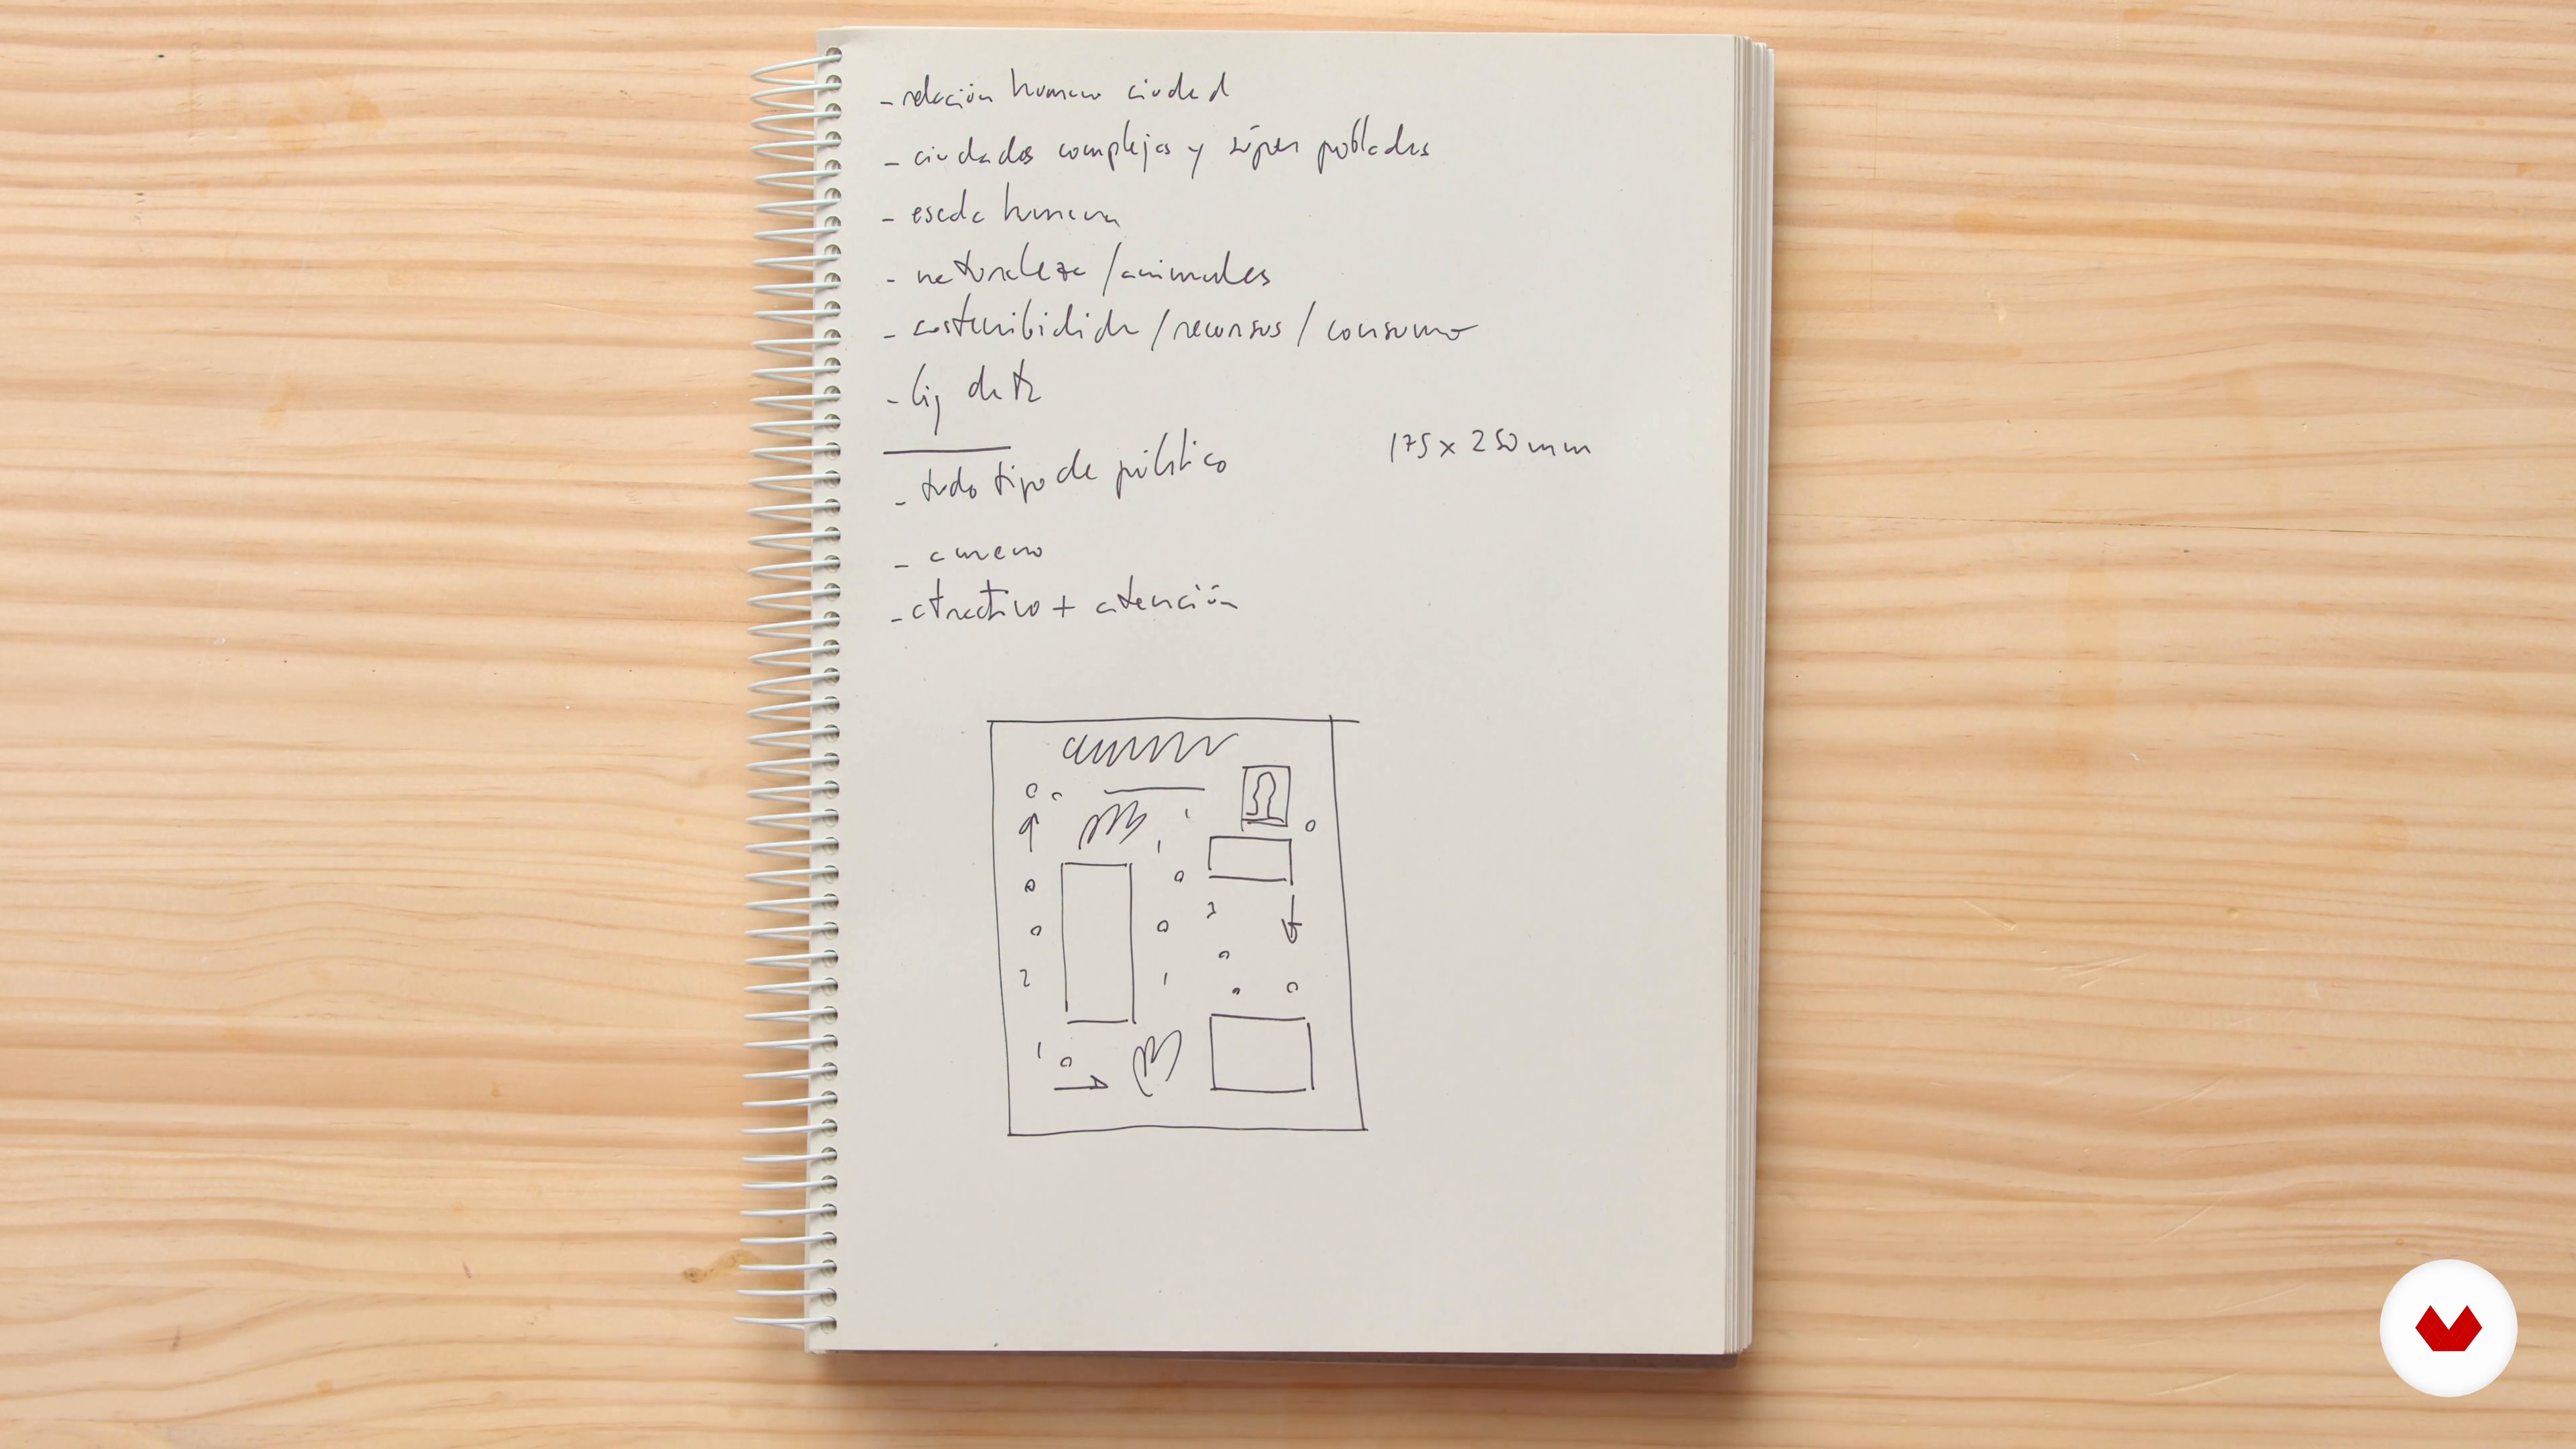 - relación humano ciudad
- ciudades complejas y súper pobladas
- escala humana
- naturaleza / animales
- sostenibilidad / recursos / consumo
- big data
- todo tipo de público
175 x 250 mm
- ameno
- atractivo + atención